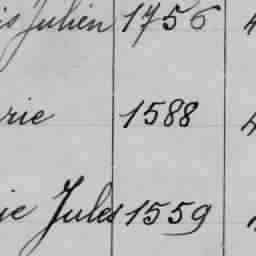 Julien 1756
rie 1588
ie Jules 1559